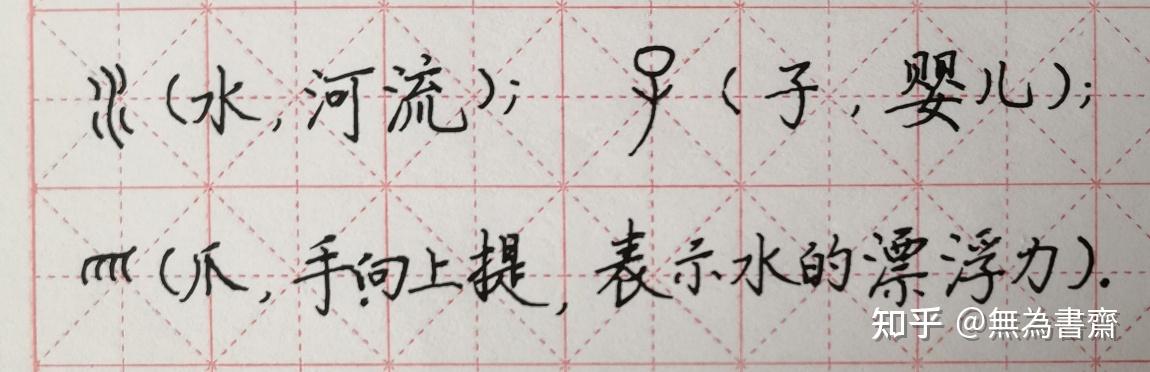 (水,河流); (子,婴儿);
(爪,手向上提,表示水的漂浮力).
知乎 @無為書齋